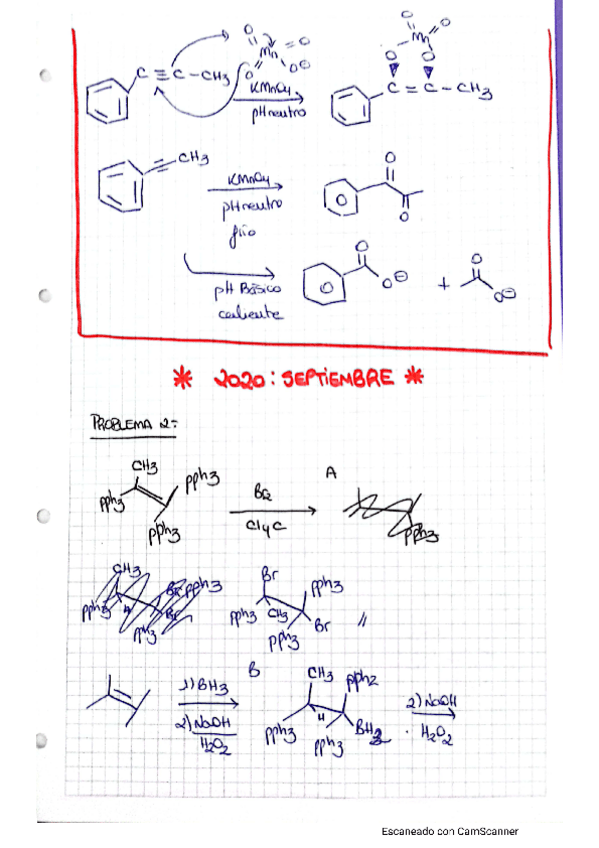 O O
Mn = O
O O⊖
C ≡ C - CH3
KMnO4
pH neutro
O O
Mn
O O
C = C - CH3
CH3
KMnO4
pH neutro
frío
O
O
pH Básico
caliente
O
O⊖
+
O
O⊖
* 2020: SEPTIEMBRE *
PROBLEMA 2:
CH3
pph3
pph3
pph3
Br2
Cl4C
A
pph3
CH3
pph3
H
Br
pph3
Br
pph3
Br
pph3
pph3
CH3
Br
pph3
//
1) BH3
2) NaOH
H2O2
B
CH3
pph2
H
pph3
pph3
BH2
2) NaOH
H2O2
Escaneado con CamScanner